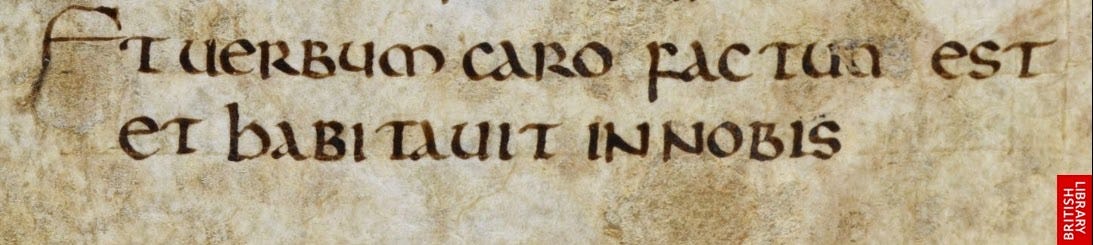 Et verbum caro factum est
et habitauit in nobis
BRITISH
LIBRARY